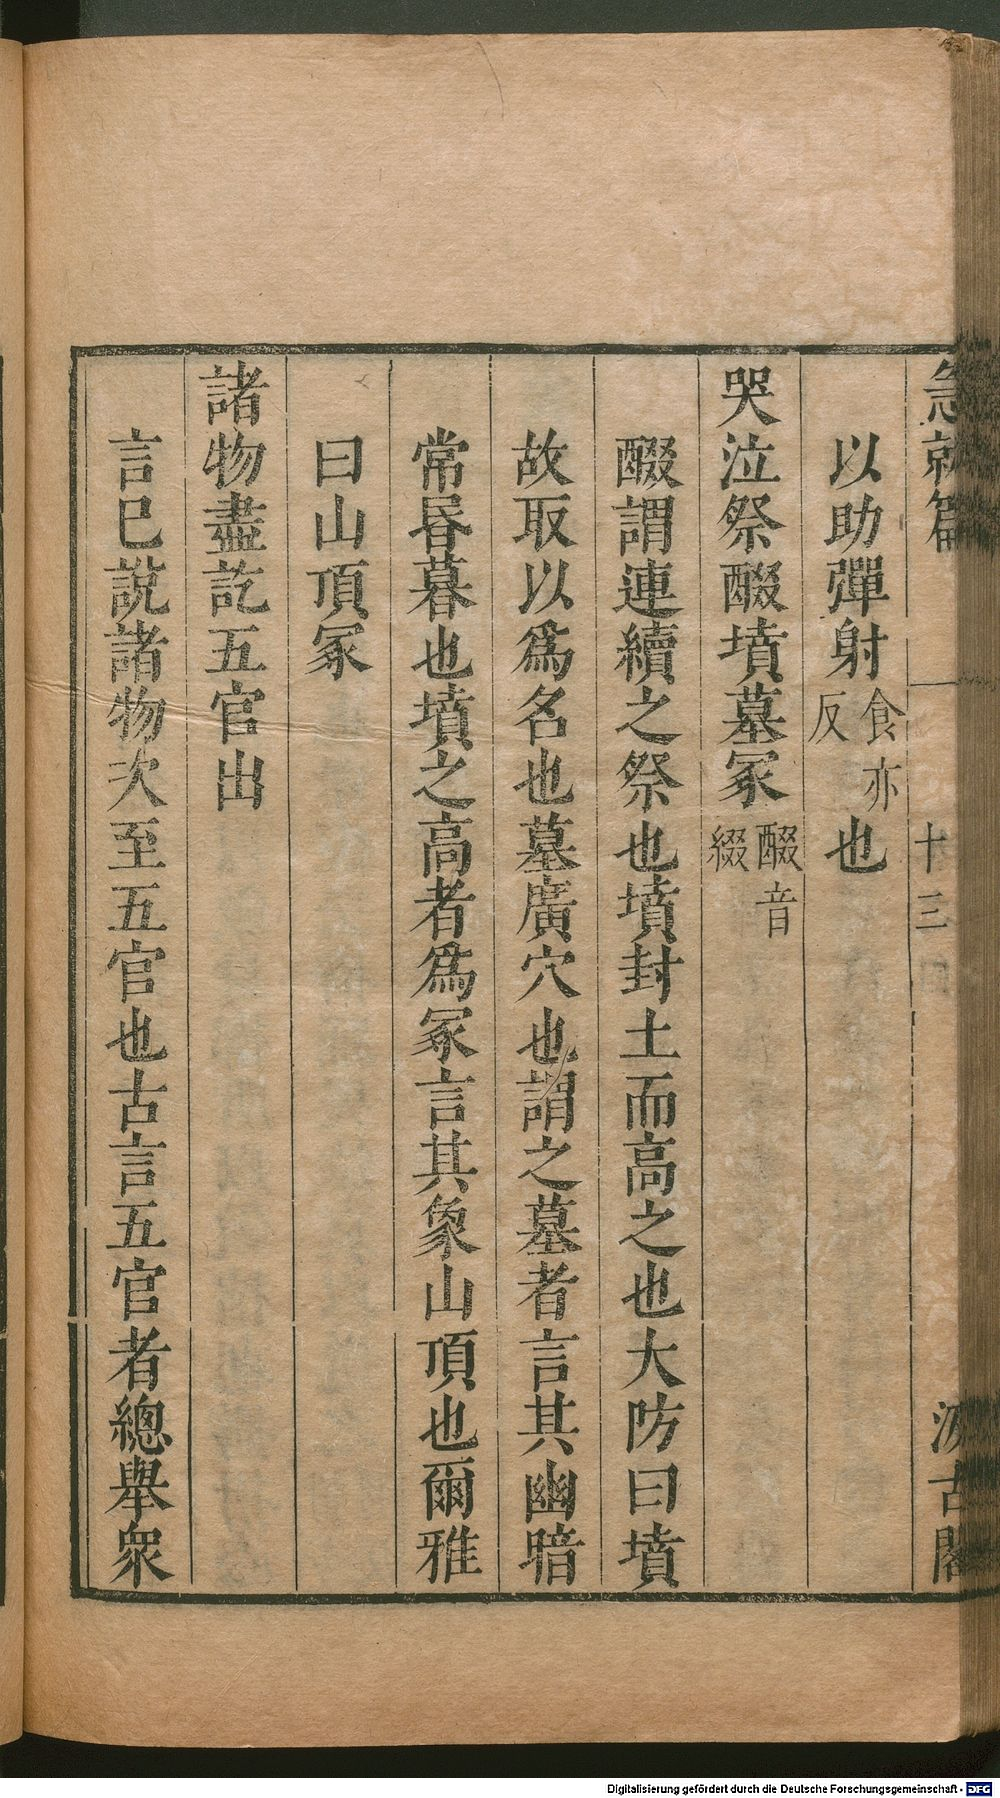 急就篇 十三 汲古閣
以助彈射食亦反也
哭泣祭醊墳墓冢醊音綴
醊謂連續之祭也墳封土而高之也大防曰墳
故取以爲名也墓廣穴也謂之墓者言其幽暗
常昬暮也墳之高者爲冢言其象山頂也爾雅
曰山頂冢
諸物盡訖五官出
言已說諸物次至五官也古言五官者總舉眾
Digitalisierung gefördert durch die Deutsche Forschungsgemeinschaft - DFG